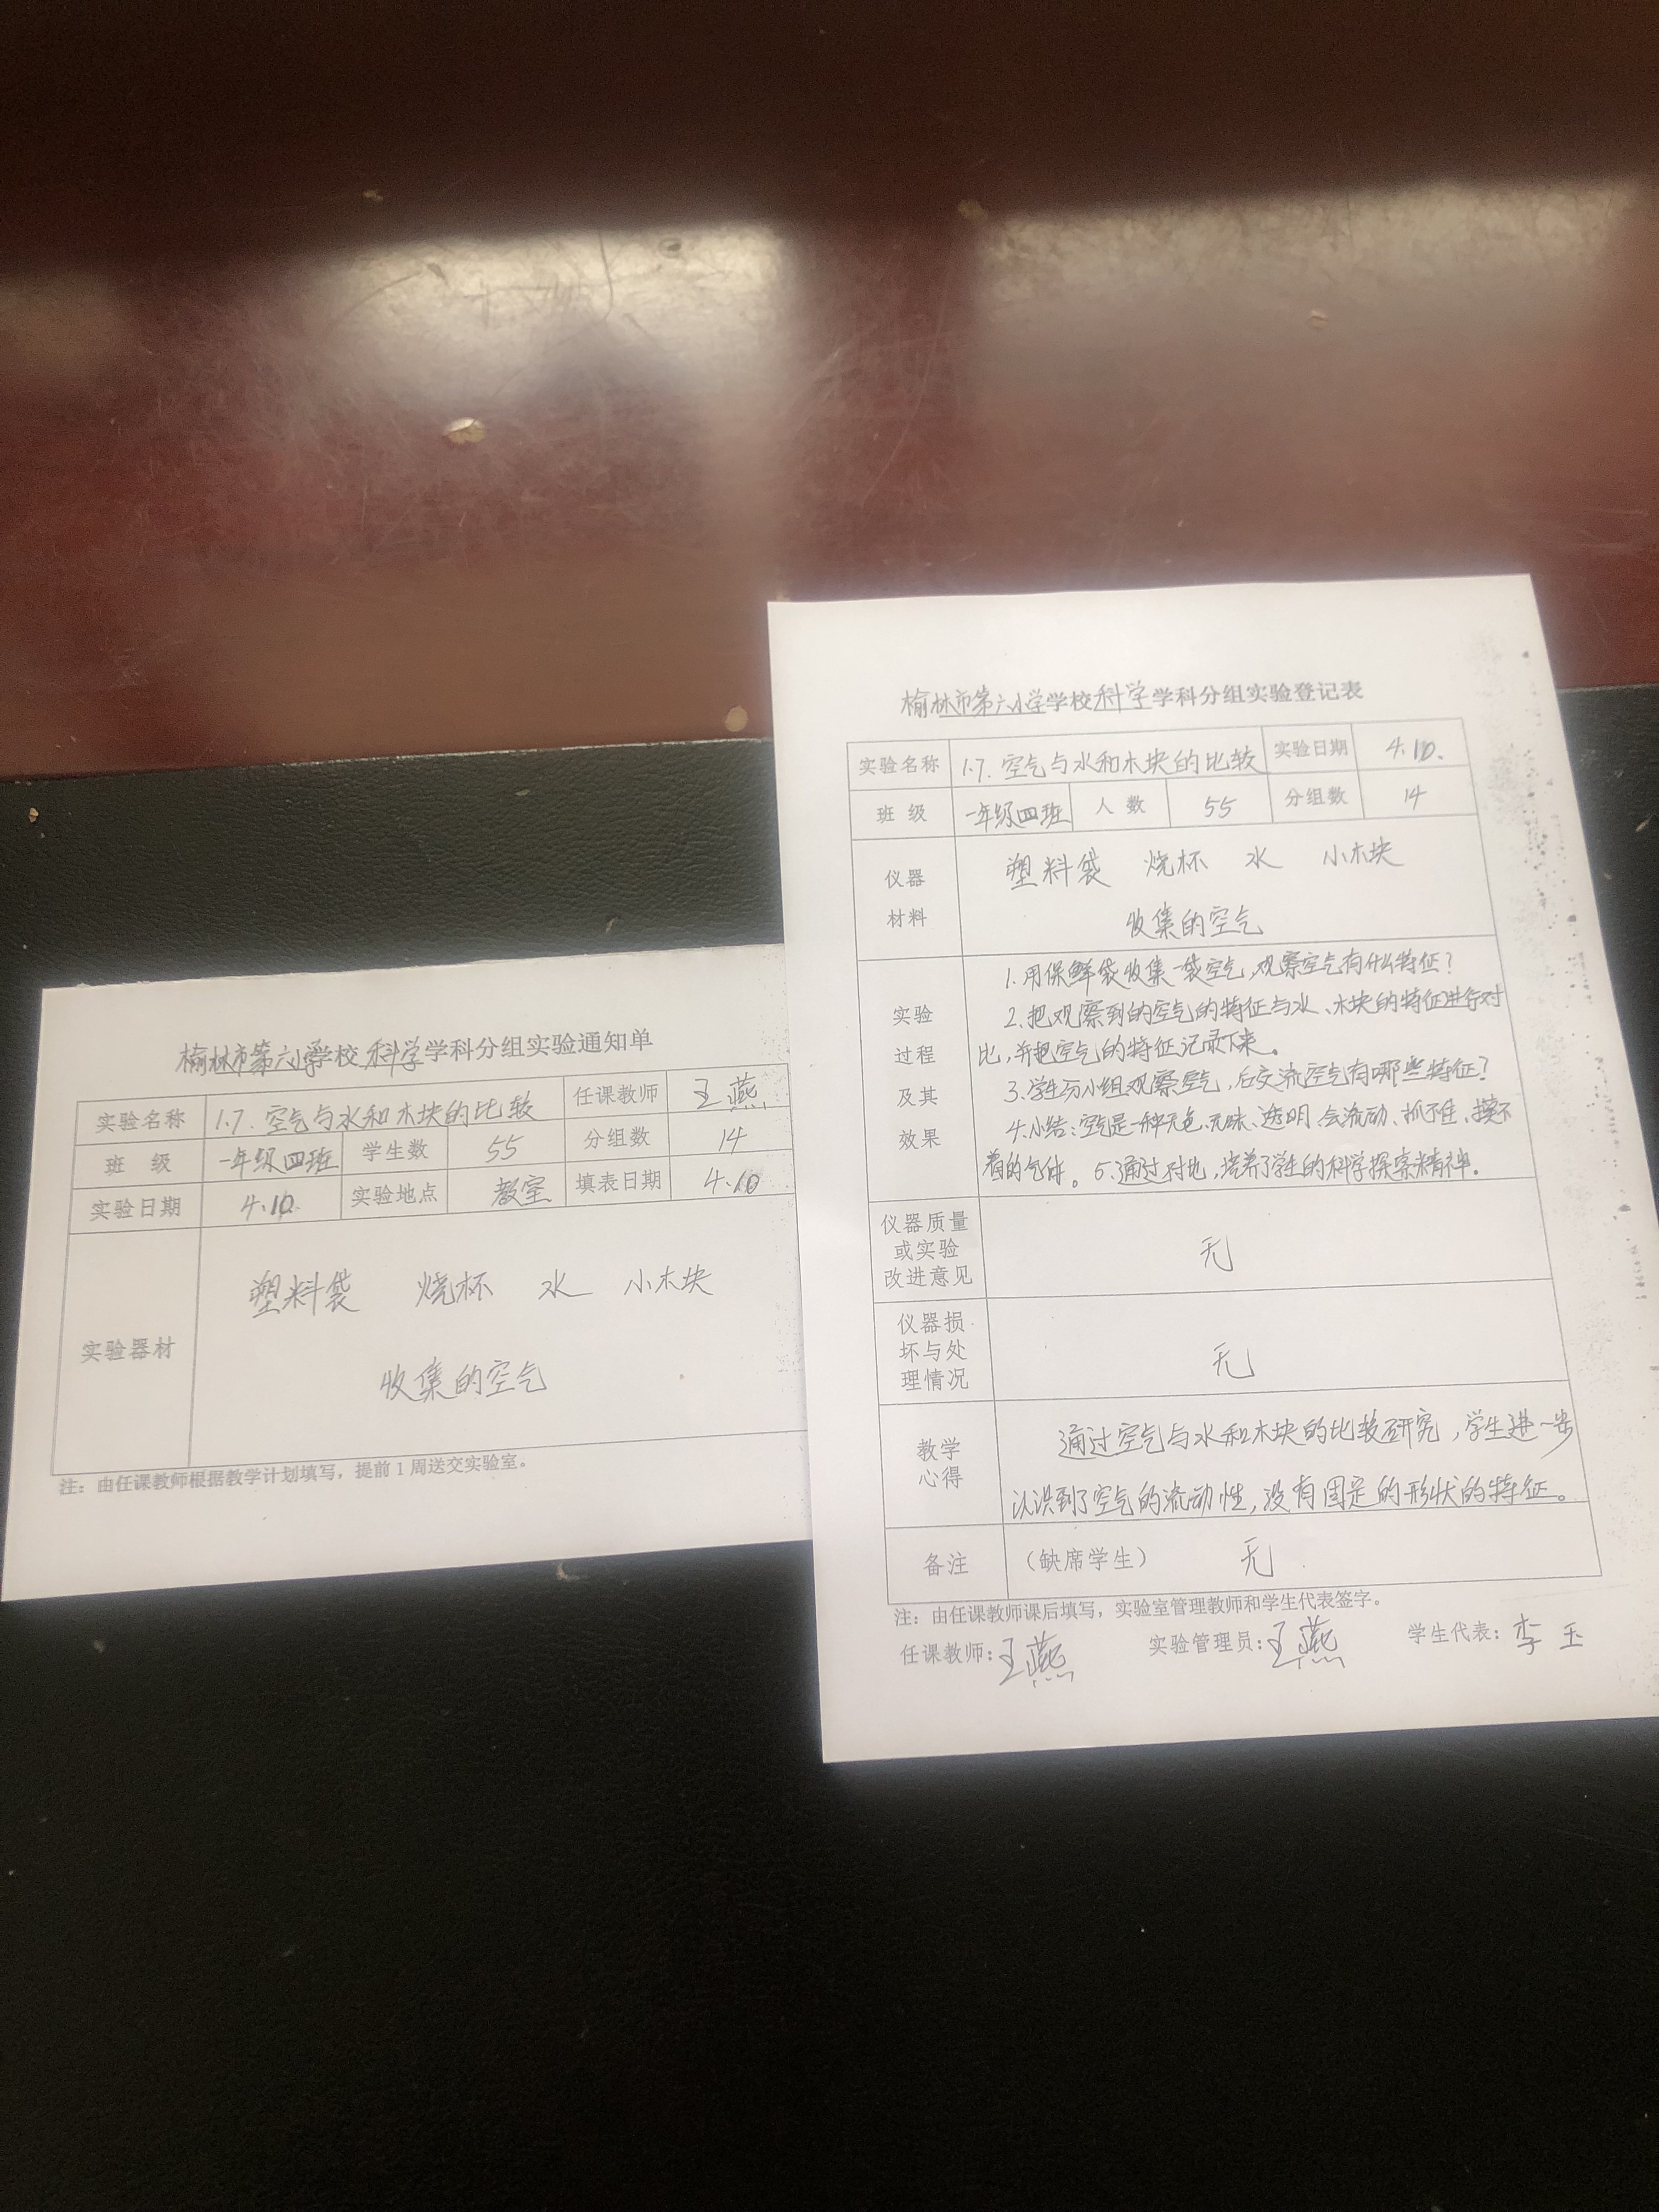 榆林市第六小学学校科学学科分组实验通知单
实验名称 1.7.空气与水和木块的比较 任课教师 王燕
班 级 一年级四班 学生数 55 分组数 14
实验日期 4.10. 实验地点 教室 填表日期 4.10
实验器材
塑料袋 烧杯 水 小木块
收集的空气
注：由任课教师根据教学计划填写，提前1周送交实验室。
榆林市第六小学学校科学学科分组实验登记表
实验名称 1.7.空气与水和木块的比较 实验日期 4.10.
班 级 一年级四班 人 数 55 分组数 14
仪器
材料
塑料袋 烧杯 水 小木块
收集的空气
实验
过程
及其
效果
1.用保鲜袋收集一袋空气，观察空气有什么特征？
2.把观察到的空气的特征与水、木块的特征进行对
比，并把空气的特征记录下来。
3.学生分小组观察空气，后交流空气有哪些特征？
4.小结：空气是一种无色、无味、透明、会流动、抓不住、摸不
着的气体。5.通过对比，培养了学生的科学探索精神。
仪器质量
或实验
改进意见
无
仪器损
坏与处
理情况
无
教学
心得
通过空气与水和木块的比较研究，学生进一步
认识到了空气的流动性，没有固定的形状的特征。
备注 （缺席学生） 无
注：由任课教师课后填写，实验室管理教师和学生代表签字。
任课教师：王燕 实验管理员：王燕 学生代表：李玉